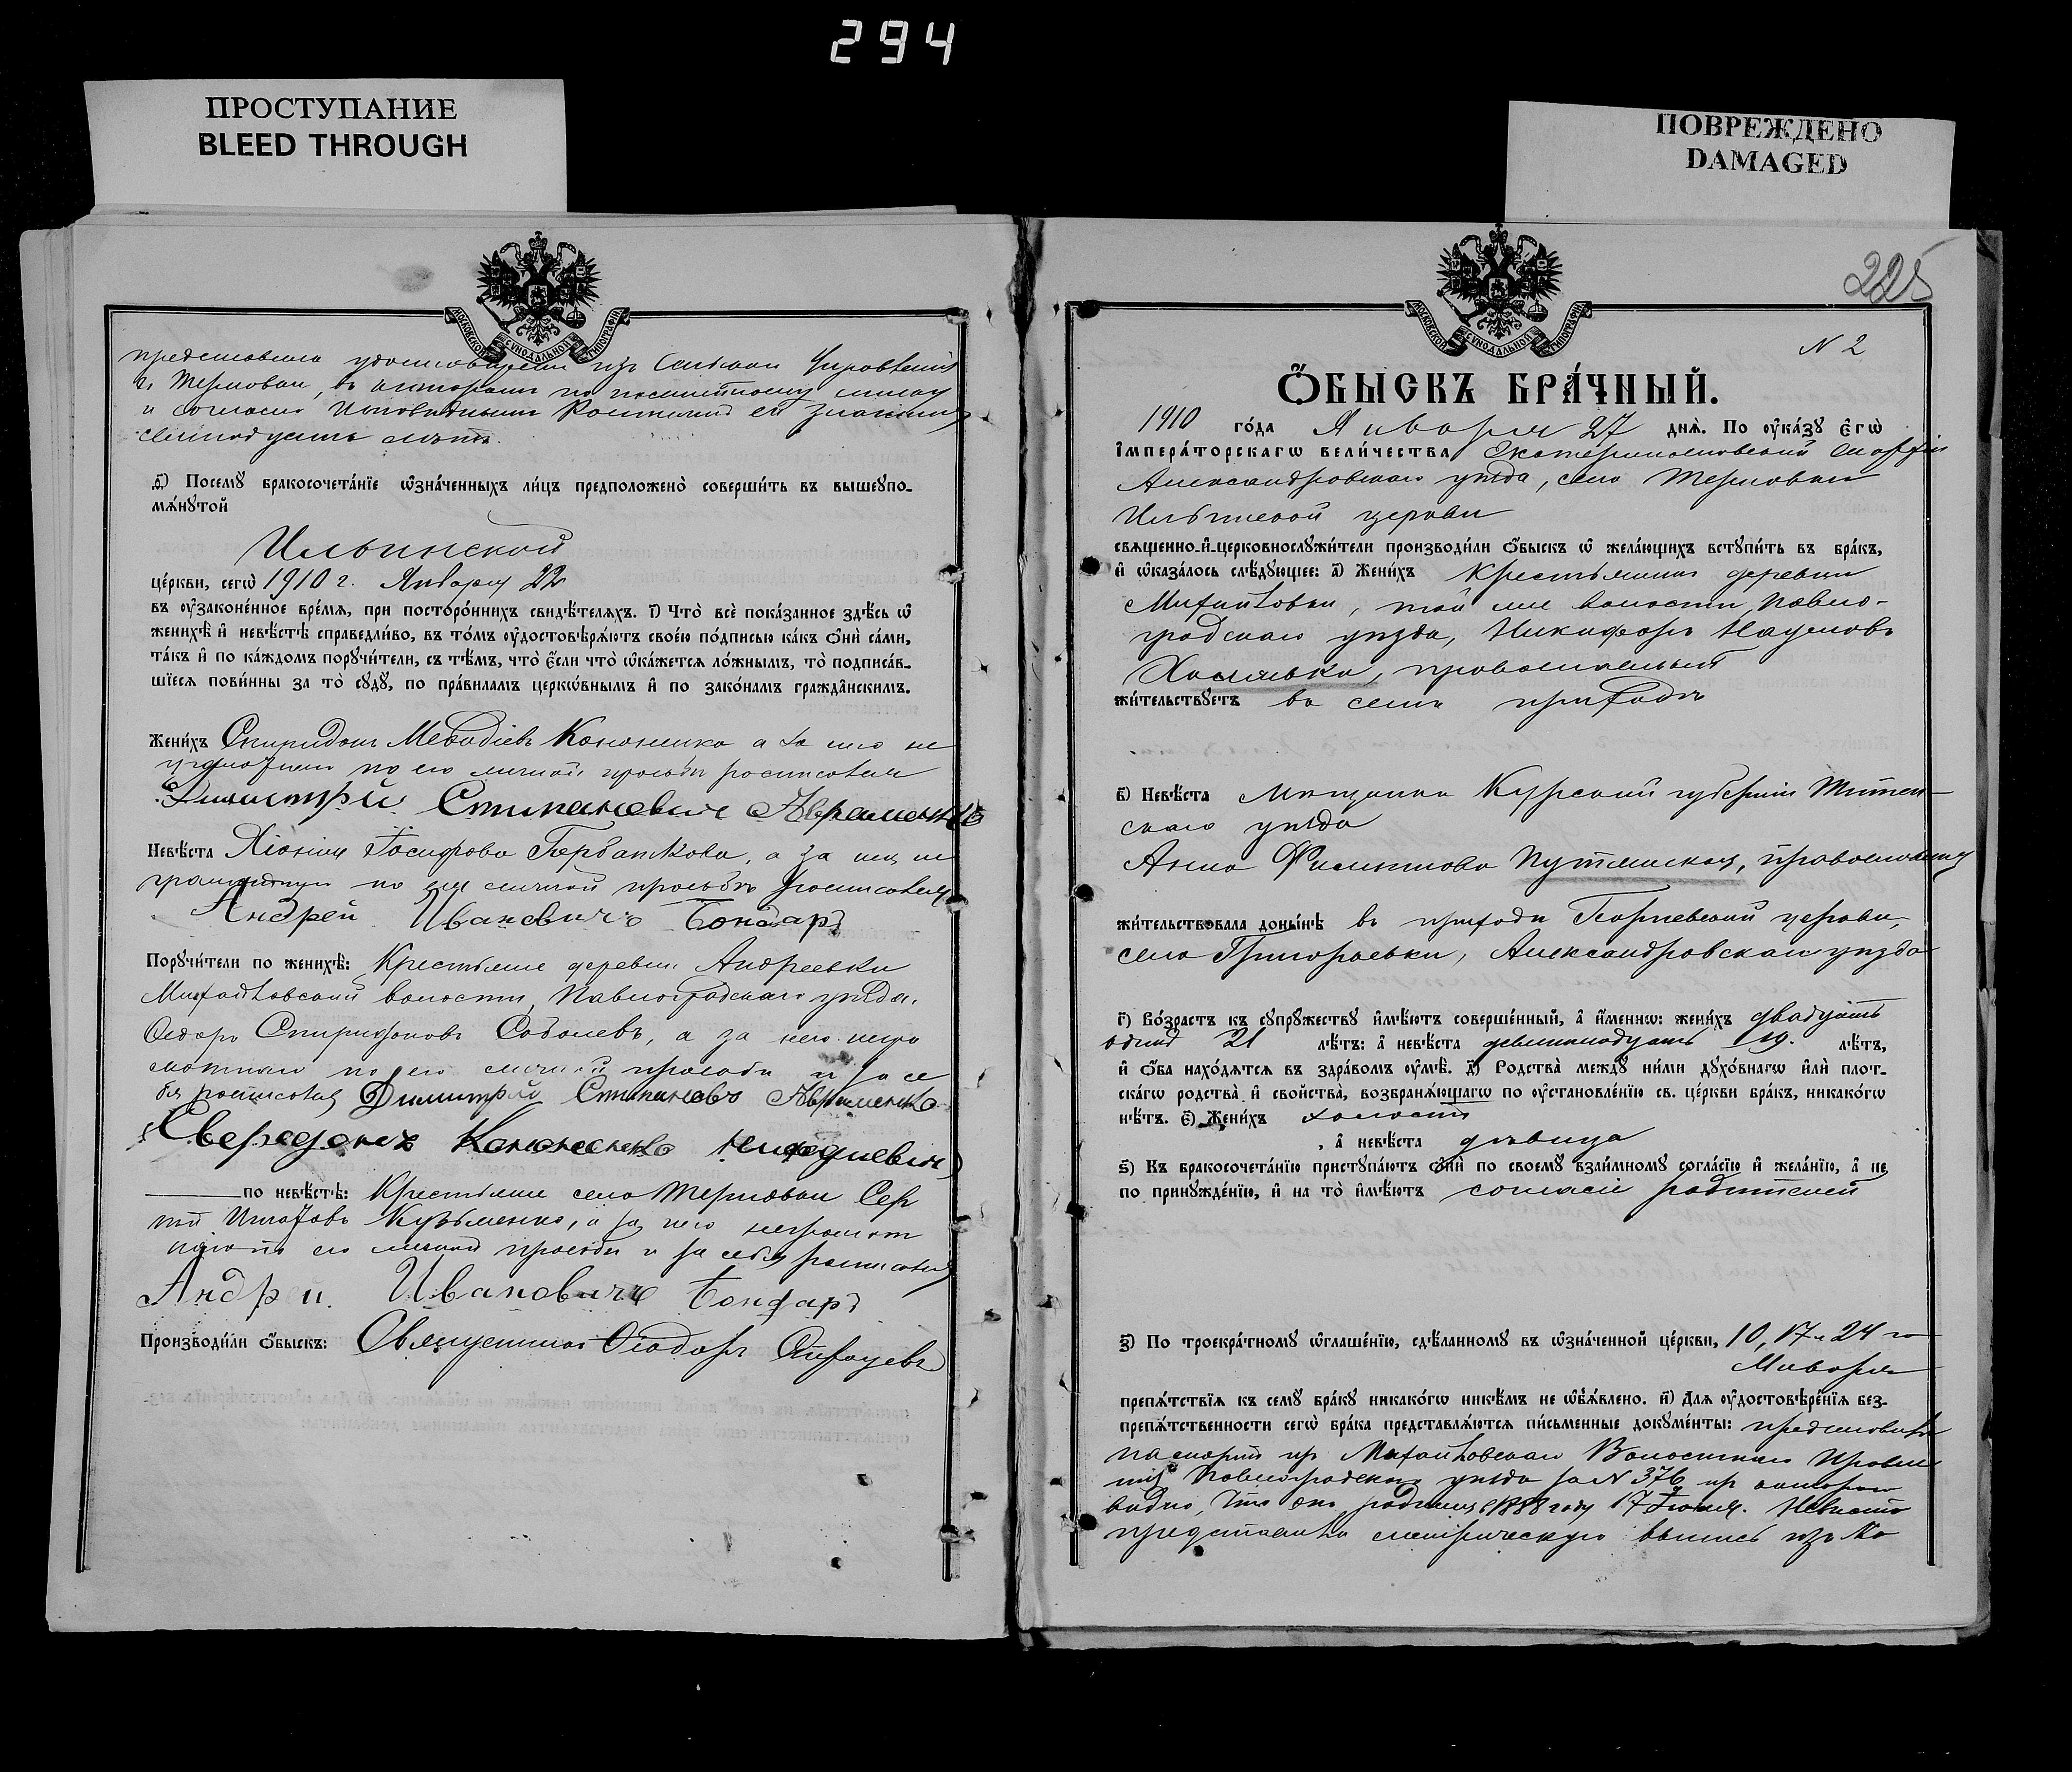 294
ПРОСТУПАНИЕ
BLEED THROUGH
ПОВРЕЖДЕНО
DAMAGED
МОСКОВСКОЙ СѴНОДАЛЬНОЙ ТИПОГРАФІИ
из
въ
и согласно
семнадцать лѣтъ.
д҃) Посемꙋ бракосочета́нїе ѡ҆зна́ченныхъ ли́цъ предположено̀ соверши́ть въ вышеупо-
мѧ́нутой
Ильинской
це́ркви, сегѡ̀ 1910 г. Января 22
въ ᲂу҆законе́нное вре́мѧ, при посторо́ннихъ свидѣ́телѧхъ. і҃) Что̀ всѐ пока́занное здѣ́сь ѡ҆
женихѣ̀ и҆ невѣ́стѣ справедли́во, въ то́мъ ᲂу҆достовѣрѧ́ютъ свое́ю по́дписью ка́къ ѻ҆нѝ са́ми,
та́къ и҆ по ка́ждомъ порꙋчи́тели, съ тѣ́мъ, что̀ є҆́сли что̀ ѡ҆ка́жетсѧ ло́жнымъ, то̀ подписа́в-
шїесѧ пови́нны за то̀ сꙋдꙋ̀, по пра́виламъ церкѡ́внымъ и҆ по зако́намъ гражда́нскимъ.
Жени́хъ Спиридонъ Меѳодіевъ Кононенко а за него не
по его личной просьбѣ росписался
Димитрій Стипановичъ Авраменко
Невѣ́ста Хіонія Іосифова а за нея не
по ея личной просьбѣ росписался
Андрей Ивановичъ Бондаръ
Порꙋчи́тели по женихѣ̀: Крестьяне деревни Андреевки
Михайловской волости, Павлоградскаго уѣзда,
Ѳедоръ Спиридоновъ Соболевъ, а за него негра
мотнаго по его личной просьбѣ и за се
бя росписался Димитрій Стипановъ Авраменко
Кононенко
по невѣ́стѣ: Крестьяне села Терновки Сер
гѣй Кузьменко, а за него неграмот
наго по его личной просьбѣ и за себя росписался
Андрей Ивановичъ Бондаръ
Производи́ли ѻ҆́быскъ: Священникъ Ѳеодоръ
225
МОСКОВСКОЙ СѴНОДАЛЬНОЙ ТИПОГРАФІИ
N 2
Ѻ҆́БЫСКЪ БРА́ЧНЫЙ.
1910 го́да Января 27 днѧ̀. По ᲂу҆ка́зꙋ Є҆гѡ̀
І҆мпера́торскагѡ вели́чества Екатеринославской епархіи
Александровскаго уѣзда, села Терновки
Ильинской церкви
свѧщенно-и҆-церковнослꙋжи́тели производи́ли ѻ҆́быскъ ѡ҆ жела́ющихъ встꙋпи́ть въ бра́къ,
и҆ ѡ҆каза́лось слѣ́дꙋющее: а҃) Жени́хъ Крестьянинъ деревни
Михайловки, той же волости, Павло-
градскаго уѣзда, Никифоръ Наумовъ
Халявка, православный
жи́тельствꙋетъ въ семъ приходѣ
в҃) Невѣ́ста Мѣщанка Курской губерніи Тим
скаго уѣзда
Анна Филиппова Путинская, православная
жи́тельствовала доны́нѣ въ приходѣ Георгіевской церкви,
села Григорьевки, Александровскаго уѣзда
г҃) Во́зрастъ къ сꙋпрꙋ́жествꙋ и҆мѣ́ютъ соверше́нный, а҆ и҆́меннѡ: жени́хъ двадцать
одинъ 21 лѣ́тъ: а҆ невѣ́ста девятнадцать 19. лѣ́тъ,
и҆ ѻ҆́ба нахо́дѧтсѧ въ здра́вомъ ᲂу҆мѣ̀. д҃) Родства̀ междꙋ ни́ми дꙋхо́внагѡ и҆лѝ плот-
ска́гѡ родства̀ и҆ свойства̀, возбранѧ́ющагѡ по ᲂу҆становле́нїю св. це́ркви бра́къ, никако́гѡ
нѣ́тъ. є҃) Жени́хъ холостъ
, а҆ невѣ́ста дѣвица
ѕ҃) Къ бракосочета́нїю пристꙋпа́ютъ ѻ҆нѝ по своемꙋ̀ взаи́мномꙋ согла́сїю и҆ жела́нїю, а҆ не
по принꙋжде́нїю, и҆ на то̀ и҆мѣ́ютъ согласіе родителей
з҃) По троекра́тномꙋ ѡ҆глаше́нїю, сдѣ́ланномꙋ въ ѡ҆зна́ченной це́ркви, 10, 17 и 24 го
Января
препѧ́тствїѧ къ семꙋ̀ бра́кꙋ никако́гѡ никѣ́мъ не ѡ҆б̾ѧ́влено. и҃) Длѧ ᲂу҆достовѣре́нїѧ без-
препѧ́тственности сегѡ̀ бра́ка представлѧ́ютсѧ пи́сьменные докꙋме́нты: представилъ
паспортъ изъ Михайловскаго Волостнаго Правле
нія Павлоградскаго уѣзда за N 376 изъ котораго
видно, что онъ родился 1888 году 17 Невѣста
представила метрическую выпись изъ Ко